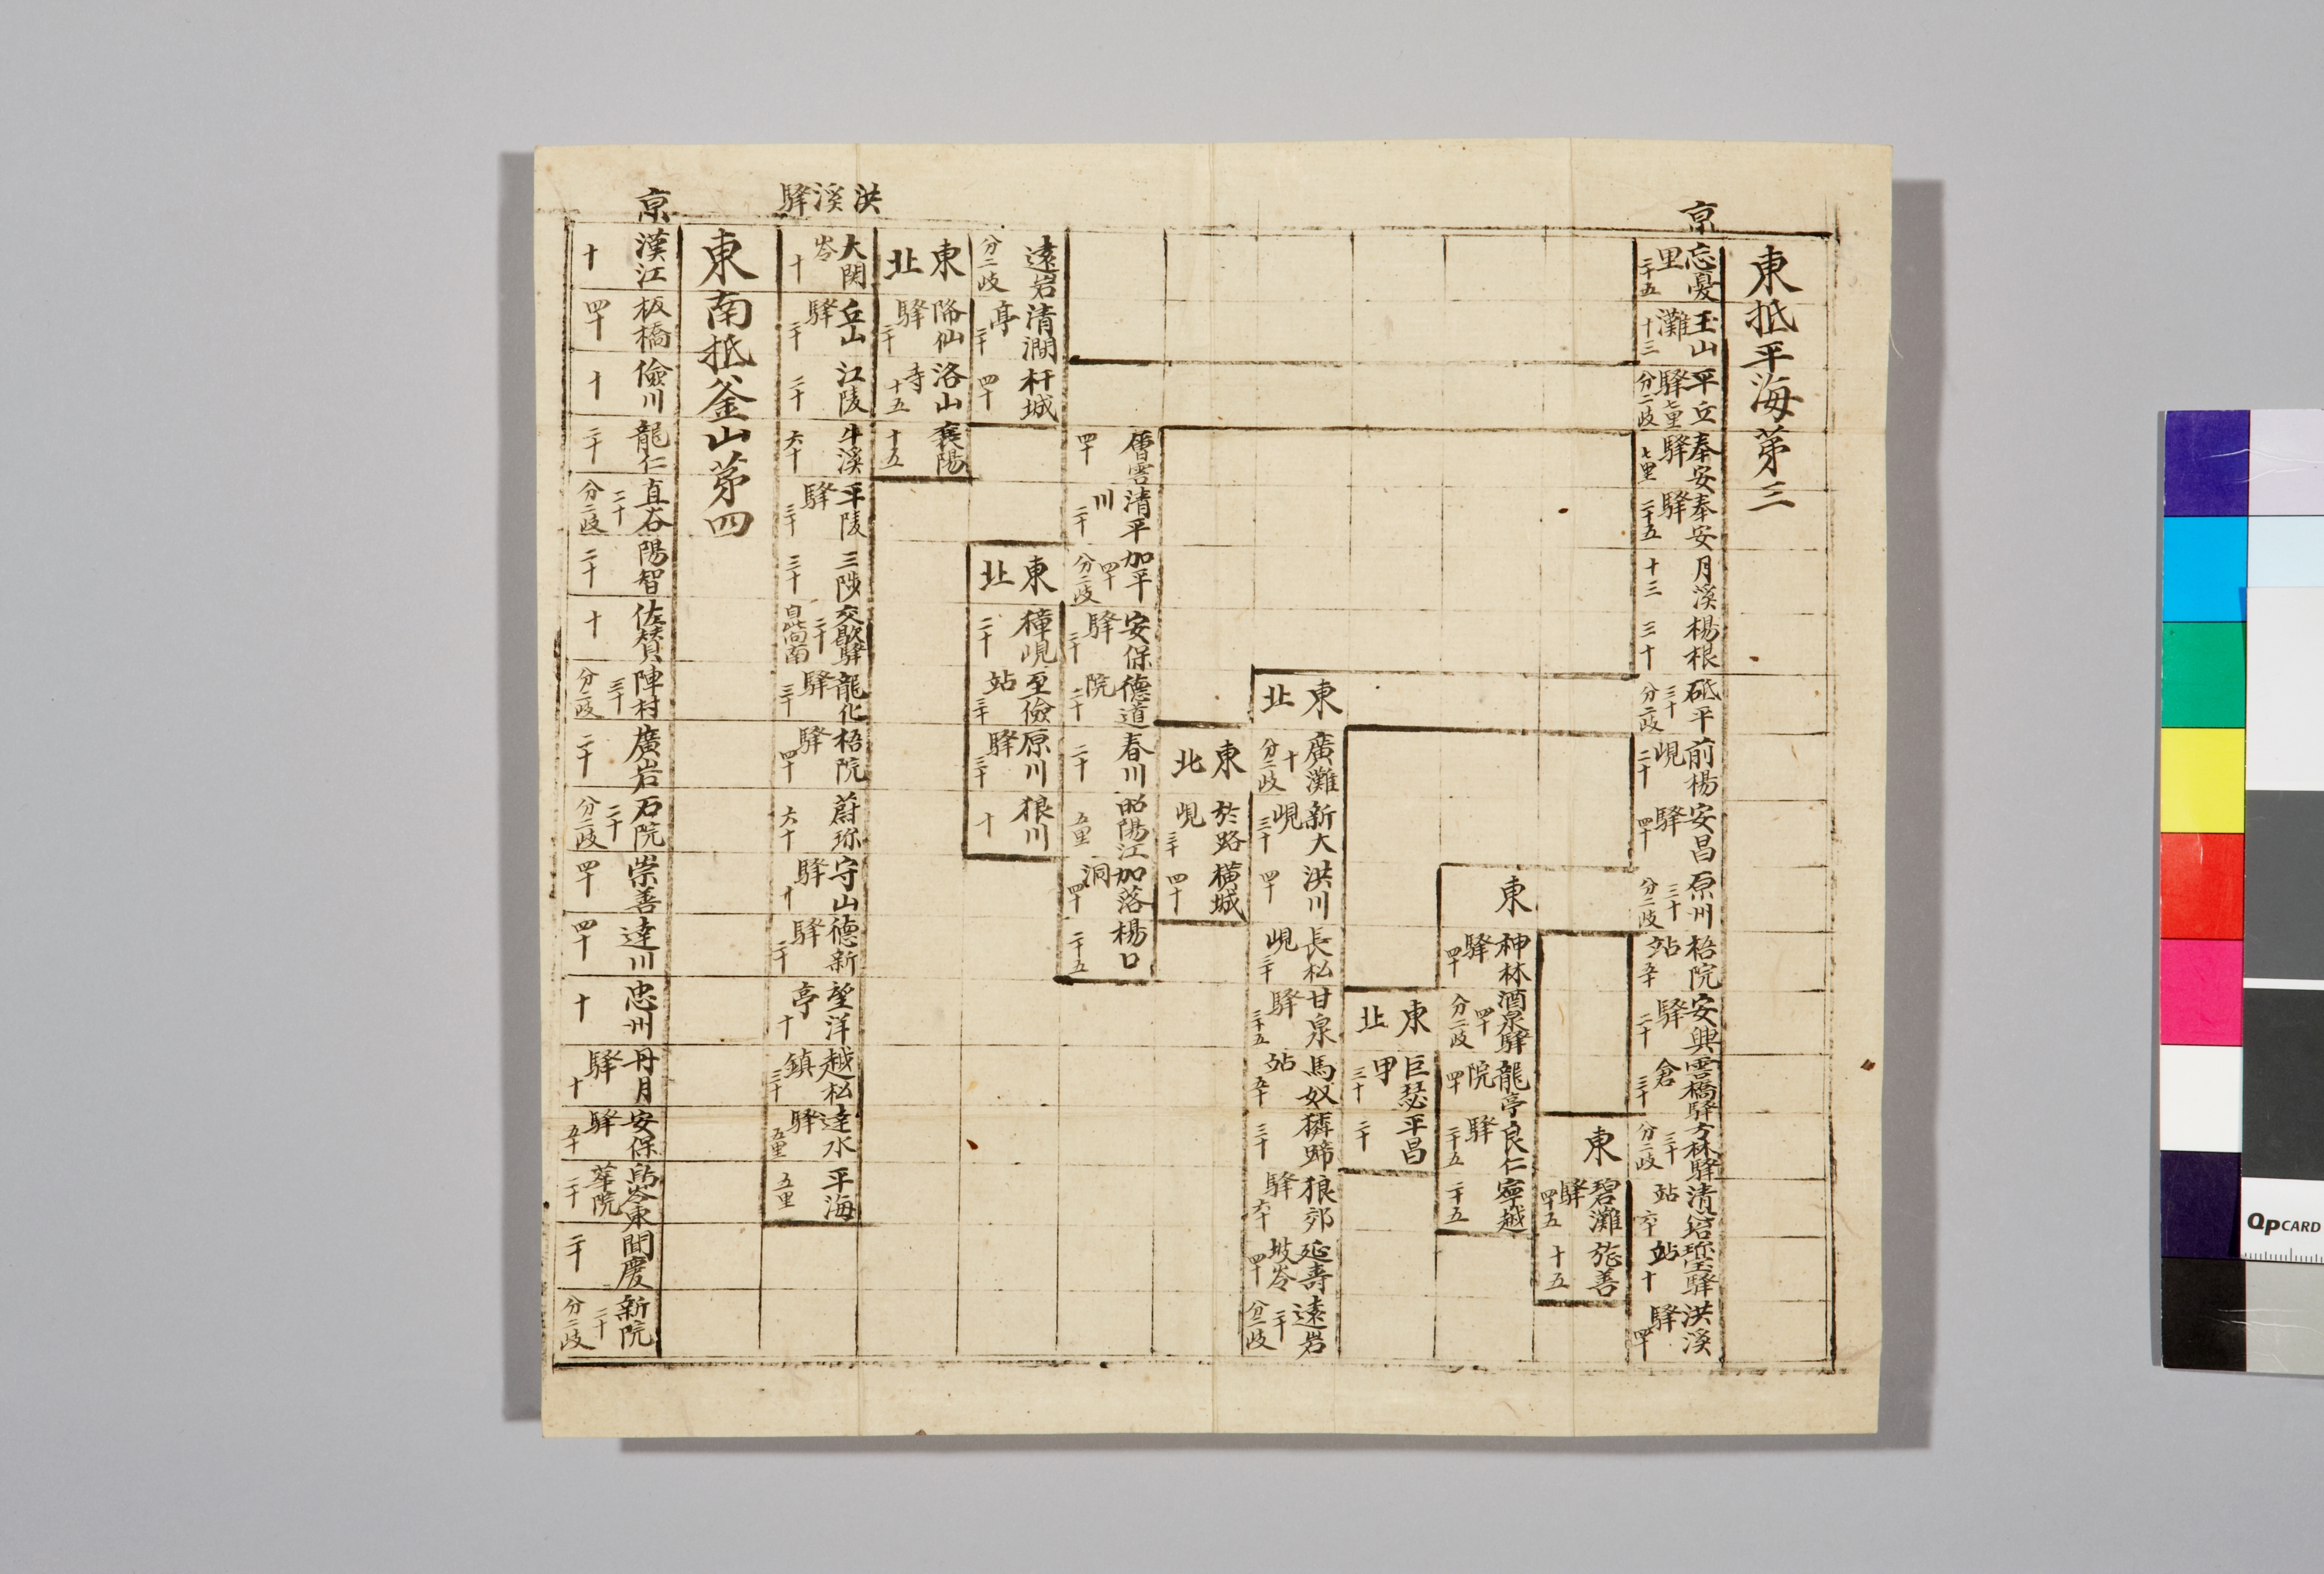 東抵平海第三
京
忘憂里 二十五
玉山灘 十三
平丘驛 七里 分二歧
奉安驛 七里
奉安驛 二十五
月溪 十三
楊根 三十
砥平 三十 分二歧
前楊峴 二十
安昌驛 四十
原州 三十 分二歧
梧院站 五十
安興驛 二十
雲橋驛倉 三十
方林驛 三十 分二歧
清心站 六十
珍富驛站 十
洪溪驛 四十
東
碧灘驛 四十五
旌善 十五
東
神林驛 四十
酒泉驛 四十 分二歧
龍亭院 四十
良仁驛 二十五
寧越 二十五
東北
巨瑟甲 三十
平昌 二十
東北
廣灘 十 分二歧
新大峴 三十
洪川 四十
長松峴 三十
甘泉驛 三十五
馬奴站 五十
獜蹄 三十
狼郊驛 六十
延壽坡岺 四十
遠岩 二十 分二歧
東北
於路峴 三十
橫城 四十
僧雲 四十
清平川 二十
加平 四十 分二歧
安保驛 二十
德道院 二十
春川 二十
昭陽江 五里
加落洞 四十
楊口 二十五
遠岩 分二歧
清澗亭 二十
杆城 四十
東北
獐峴 二十
至儉站 三十
原川驛 三十
狼川 十
東北
降仙驛 二十
洛山寺 十五
襄陽 十五
洪溪驛
大関岺 十
丘山驛 二十
江陵 二十
牛溪 六十
平陵驛 三十
三陟 三十
交歇驛 二十 自此向南
龍化驛 三十
梧院驛 四十
蔚珍 六十
守山驛 十
德新驛 二十
望洋亭 十
越松鎮 三十
達水驛 五里
平海 五里
東南抵釜山第四
京
漢江 十
板橋 四十
儉川 十
龍仁 二十
直谷 二十 分二歧
陽智 二十
佐贊 十
陣村 三十 分二歧
廣岩 二十
石院 二十 分二歧
崇善 四十
達川 四十
忠州 十
丹月驛 十
安保驛 五十
岺東華院 二十
聞慶 二十
新院 二十 分二歧
QpCARD